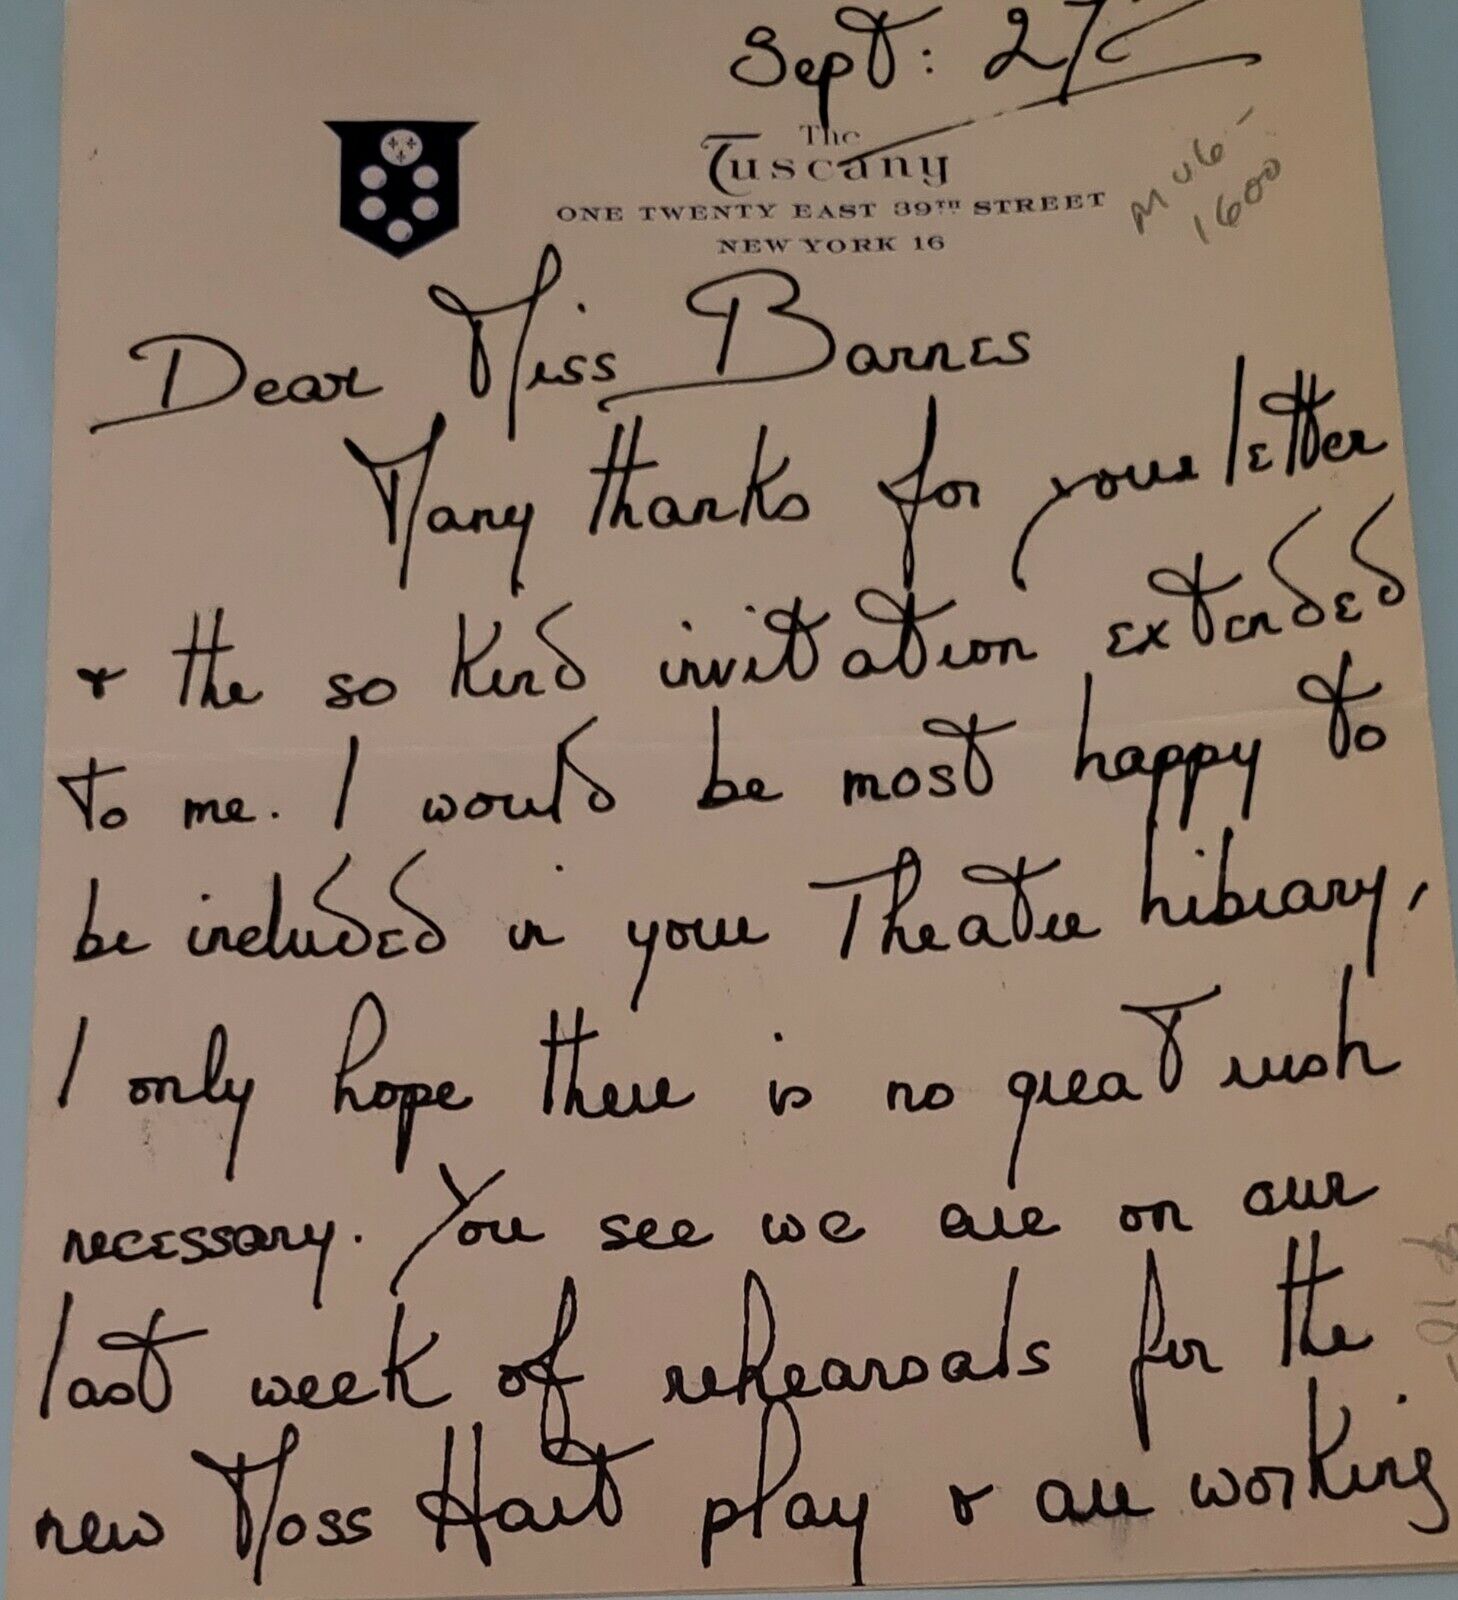 Sept: 27
The
Tuscany
ONE TWENTY EAST 39TH STREET
NEW YORK 16
MU6-
1600
Dear Miss Barnes
Many thanks for your letter
& the so kind invitation extended
to me. I would be most happy to
be included in your Theatre Library,
I only hope there is no great rush
necessary. You see we are on our
last week of rehearsals for the
new Moss Hart play & are working